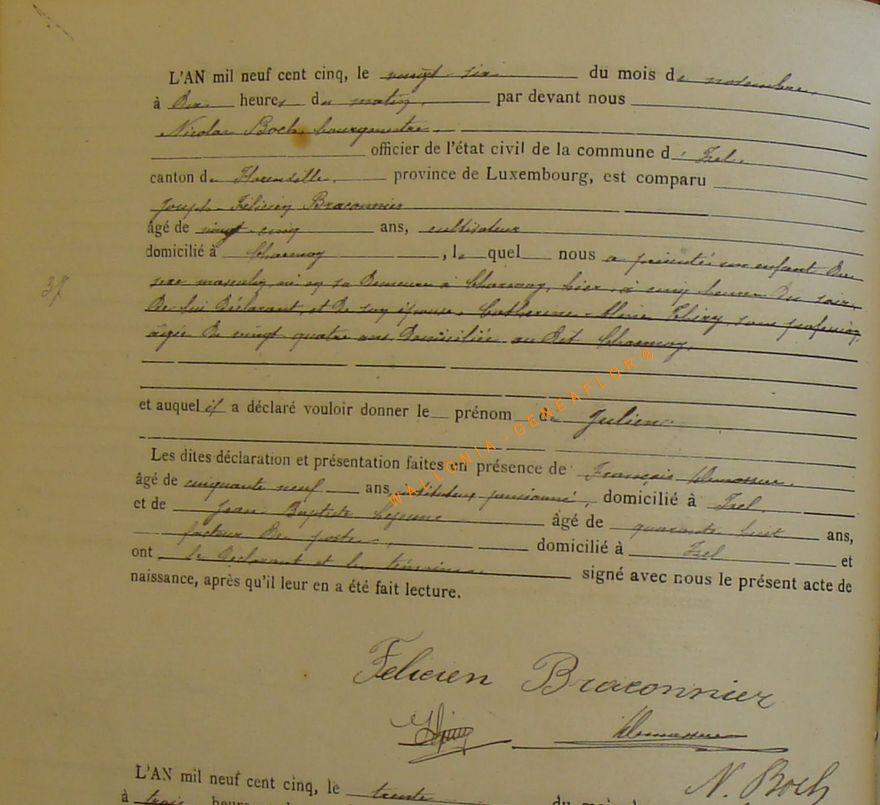 L'AN mil neuf cent cinq, le vingt-six du mois de novembre,
à Dix heures du matin, par devant nous
Nicolas Boch, bourgmestre
officier de l'état civil de la commune d'Izel,
canton de Florenville, province de Luxembourg, est comparu
Joseph Félicien Braconnier
âgé de vingt-cinq ans, cultivateur
domicilié à , lequel nous a présenté un enfant du
37
sexe masculin, né en sa Demeure à , hier, à cinq heures Du soir,
De lui Déclarant, et De son épouse, Catherine Thiry, sans profession,
âgée De vingt quatre ans Domiciliée au Dit
et auquel il a déclaré vouloir donner le prénom de Julien
Les dites déclaration et présentation faites en présence de François
âgé de cinquante neuf ans, instituteur pensionné, domicilié à Izel,
et de Jean Baptiste Lejeune âgé de quarante huit ans,
facteur Des postes, domicilié à Izel et
ont le Déclarant et les témoins signé avec nous le présent acte de
naissance, après qu'il leur en a été fait lecture.
WALLONIA-GENEAFLOR®
Félicien Braconnier
N. Boch
L'AN mil neuf cent cinq, le trente du mois de
à trois heures